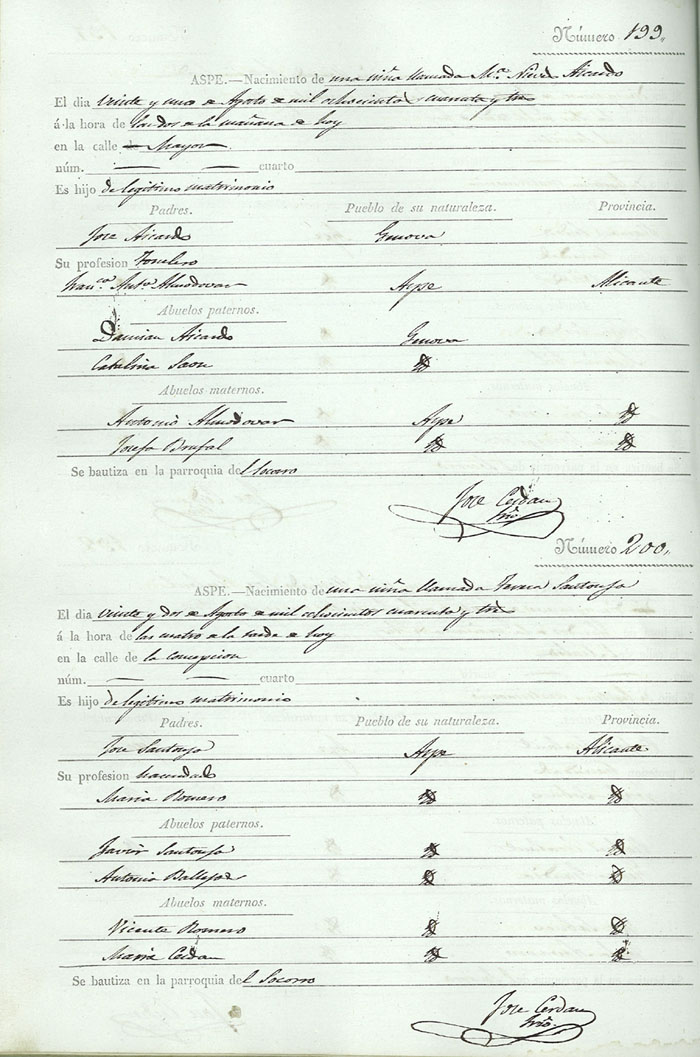 Número 199.
ASPE.—Nacimiento de una niña llamada Mª Nieves Aicardo
El dia veinte y uno de Agosto de mil ochocientos cuarenta y tres
á la hora de las dos de la mañana de hoy
en la calle Mayor
núm. — — cuarto
Es hijo de legitimo matrimonio
Padres. Pueblo de su naturaleza. Provincia.
Jose Aicardo Genova
Su profesion Tonelero
Franca Anta Almodovar Aspe Alicante
Abuelos paternos.
Damian Aicardo Genova
Catalina Saon
Abuelos maternos.
Antonio Almodovar Aspe
Josefa Brufal
Se bautiza en la parroquia del Socorro
Jose Cerdan
Srio
Número 200.
ASPE.—Nacimiento de una niña llamada Teresa Santonja
El dia veinte y dos de Agosto de mil ochocientos cuarenta y tres
á la hora de las cuatro de la tarde de hoy
en la calle de la Concepcion
núm. — — cuarto
Es hijo de legitimo matrimonio
Padres. Pueblo de su naturaleza. Provincia.
Jose Santonja Aspe Alicante
Su profesion hacendado
Maria Romero
Abuelos paternos.
Javier Santonja
Antonia Ballejos
Abuelos maternos.
Vicente Romero
Maria Cerdan
Se bautiza en la parroquia del Socorro
Jose Cerdan
Srio